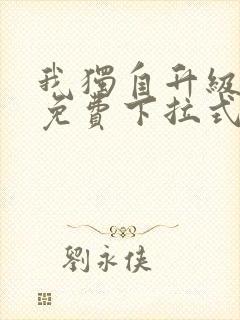 我獨自升級
免費下拉式
劉永俠